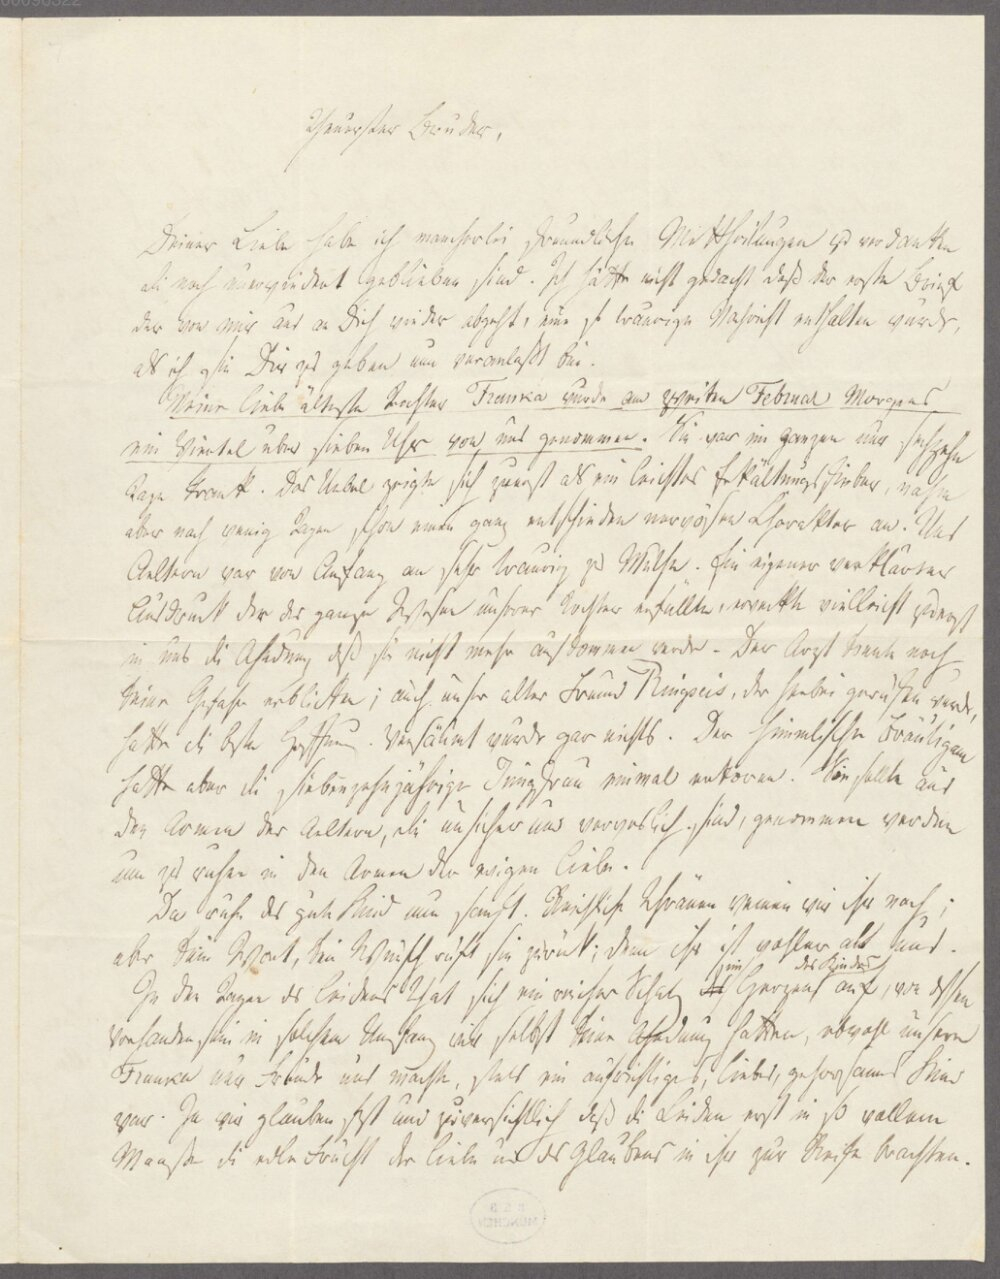 00090322
Theuerster Bruder,
Deiner Liebe habe ich mancherlei freundliche Mittheilungen zu verdanken
die noch unerwiedert geblieben sind. Ich hätte nicht gedacht daß der erste Brief
der von mir aus an Dich wieder abgeht, eine so traurige Nachricht enthalten würde,
als ich sie Dir zu geben nun veranlaßt bin.
Meine liebe älteste Tochter Franka wurde am zweiten Februar Morgens
ein Viertel über sieben Uhr von uns genommen. Sie war im ganzen nur sechzehn
Tage krank. Das Uebel zeigte sich zuerst als ein leichtes Erkältungsfieber, nahm
aber nach wenig Tagen schon einen ganz entschieden nervösen Charakter an. Uns
Aeltern war von Anfang an sehr traurig zu Muthe. Ein eigener verklärter
Ausdruck der das ganze Wesen unserer Tochter erfüllte, erweckte vielleicht zuerst
in uns die Ahndung daß sie nicht mehr aufkommen werde. Der Arzt konnte noch
keine Gefahr erblicken; auch unser alter Freund Ringseis, der herbei gerufen wurde,
hatte die beste Hoffnung. Versäumt wurde gar nichts. Der himmlische Bräutigam
hatte aber die siebenzehnjährige Jungfrau einmal erkoren. Sie sollte aus
den Armen der Aeltern, die unsicher und vergeslich sind, genommen werden
um zu ruhen in den Armen der ewigen Liebe.
Da ruhe das gute Kind nun sanft. Reichliche Thränen weinen wir ihr nach;
aber kein Wort, kein Wunsch ruft sie zurück; denn ihr ist wohler als uns.
In den Tagen des Leidens that sich ein reicher Schatz im Herzens des Kindes auf, von dessen
Vorhandensein in solchem Umfang wir selbst keine Ahndung hatten, obwohl unsere
Franka nur Freude uns machte, stets ein aufrichtiges, liebes, gehorsames Kind
war. Ja wir glauben fest und zuversichtlich daß die Leiden erst in so vollem
Maaße die edle Frucht der Liebe und des Glaubens in ihr zur Reife brachten.
BSB
MÜNCHEN